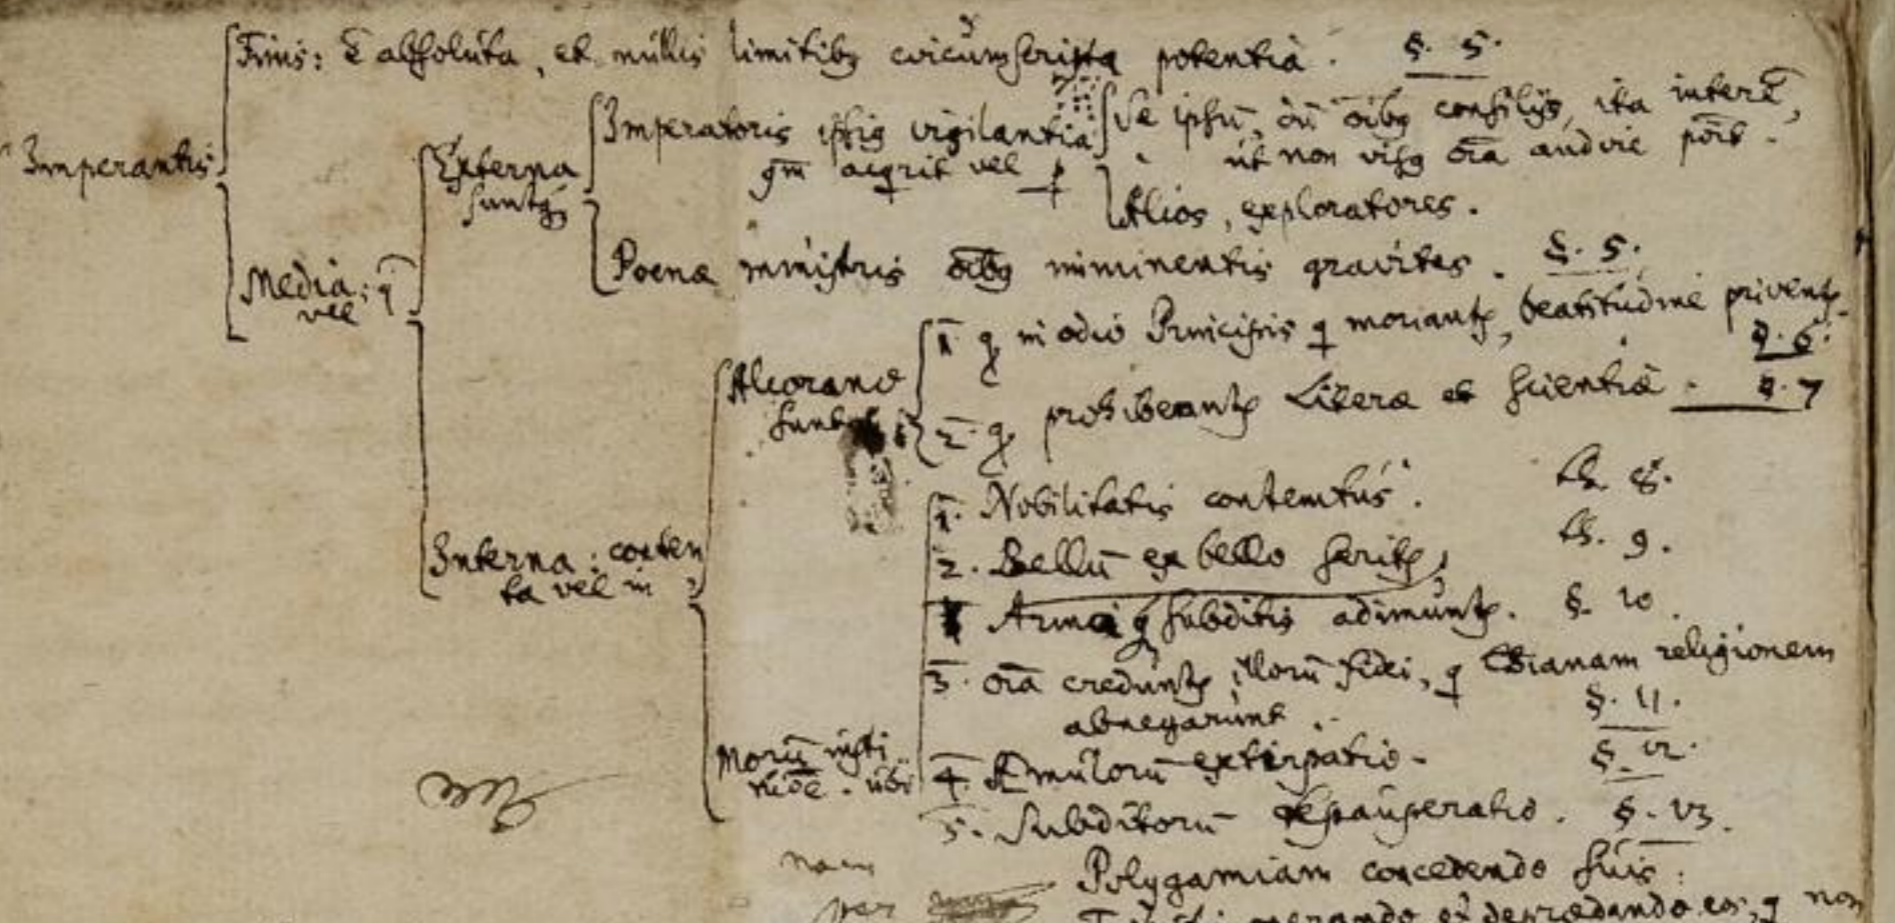 Finis: ē absoluta, et nullis limitibq circumscripta potentia. §. 5.
Imperantis
Media: q̄
vel
Externa
suntq
Imperatoris ipsiq vigilantia
qm̄ acqrit vel p
Se ipsū, dū oībq consilijs, ita interē,
ut non visq oīa audire pōīt.
Alios, exploratores.
Poena ministris oībq imminentis gravitas. §. 5.
Interna: conten
ta vel in
Alcorano
sunt
1 q in odio Principis q moriantr, beatitudine priventr.
§. 6.
2. q prohibeantr Literæ et scientiæ. §. 7
Morū insti
tiōē. ubi
1. Nobilitatis contemtus. th. 8.
2. Bellū ex bello seritr, th. 9.
Arma q subditis adimuntr. §. 10.
3. oīa creduntr illorū fidei, q Xstianam religionem
abnegarunt. §. 11.
4. Æmulorū extirpatio. §. 12.
5. Subditorū depauperatio. §. 13.
nam
Polygamiam concedendo suis:
per
et depredando eos, q non